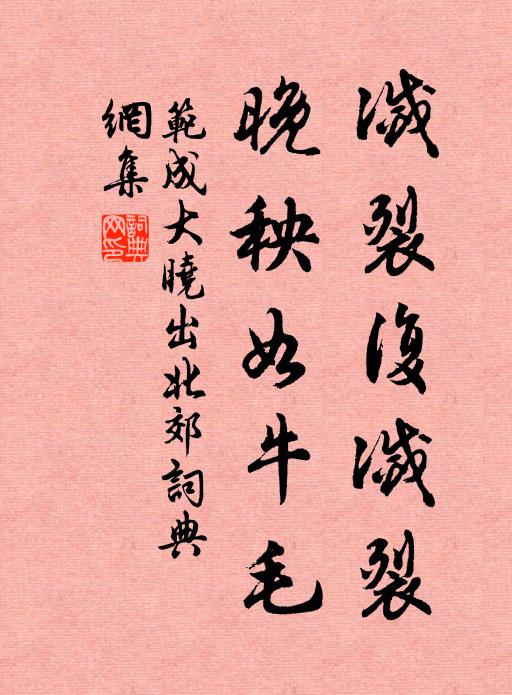 滅裂復滅裂
晚秧如牛毛
範成大曉出北郊詞典
網集
詞典網印